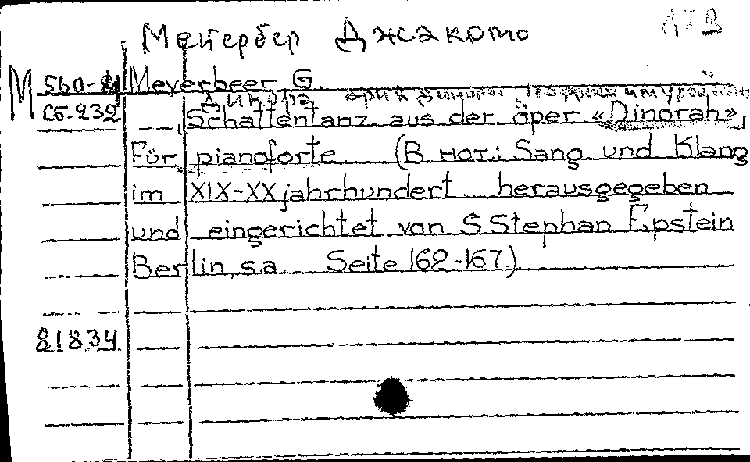 Мейербер Джакомо
М 560-21 Meyerbeer G.
Сб.232 Schattentanz aus der öper «Dinorah»,
Für pianoforte (В нот.: Sang und Klang
im XIX-XX jahrhundert herausgegeben
und eingerichtet von S. Stephan Epstein
Berlin, s.a. Seite 162-167)
81834